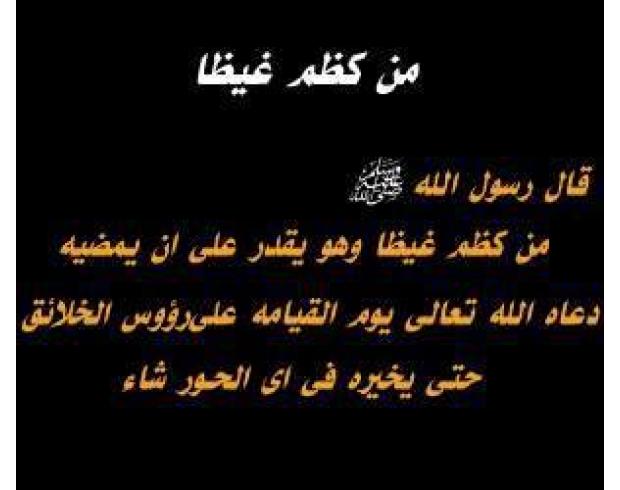 من كظم غيظا
قال رسول الله ﷺ
من كظم غيظا وهو يقدر على ان يمضيه
دعاه الله تعالى يوم القيامه على رؤوس الخلائق
حتى يخيره فى اى الحور شاء